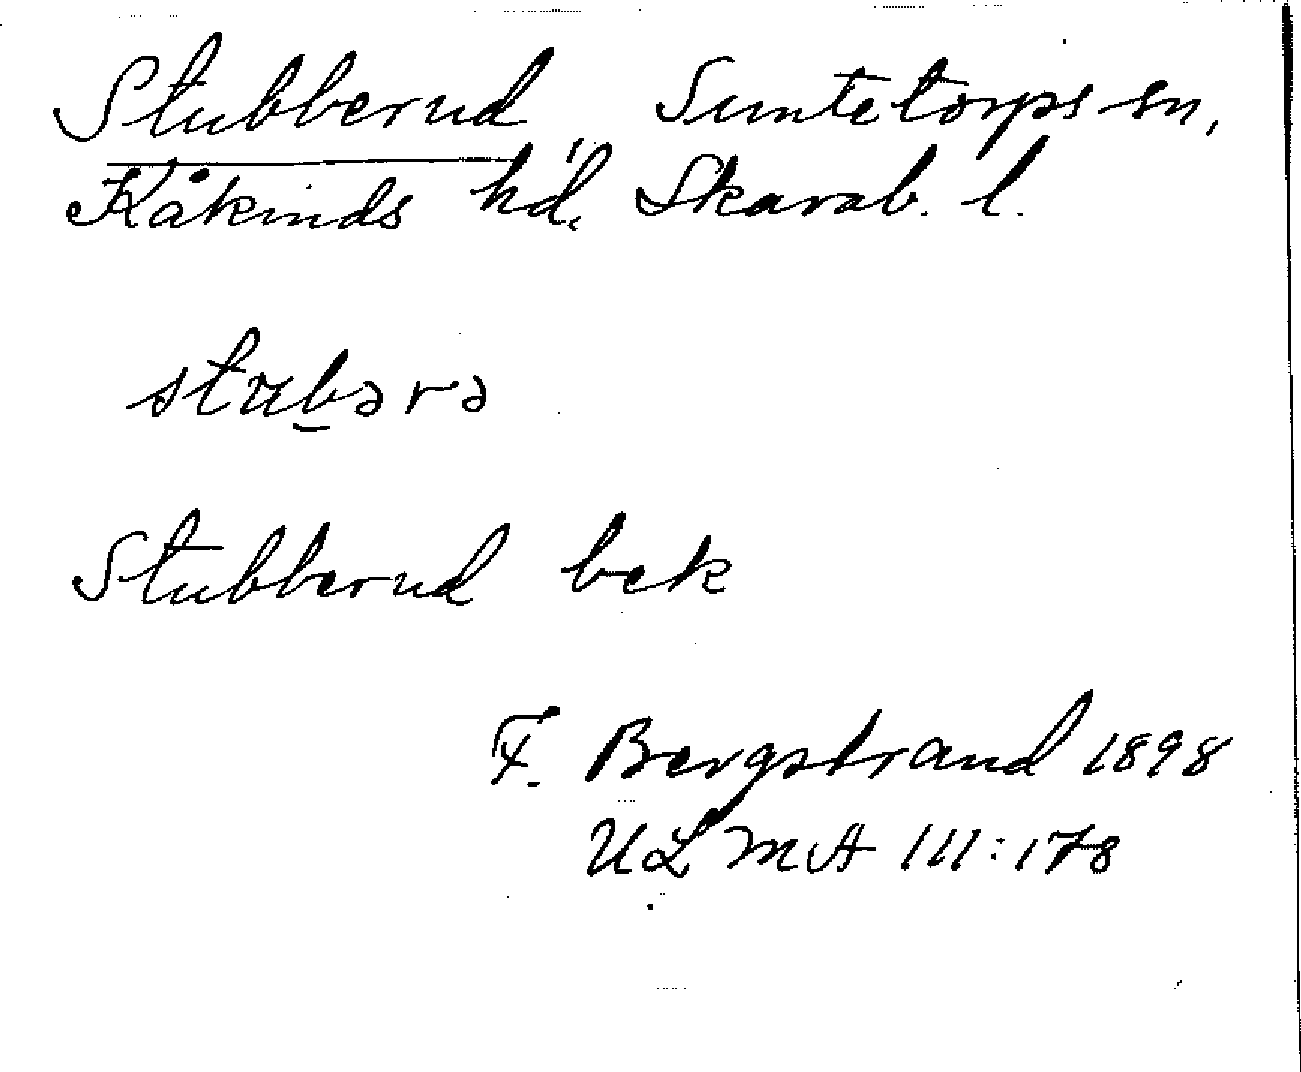 Stubberud, Suntetorps sn,
Kåkinds hd, Skarab. l.
stub̠ərə
Stubberud bek
F. Bergstrand 1898
ULMA 111:178